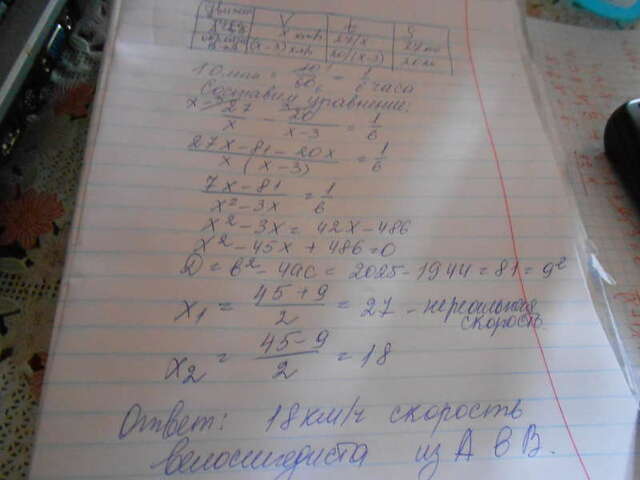 V t S
x 27/x 27 км
(x-3) 20/(x-3)
10 мин = 10/60 = 1/6 часа
Составим уравнение:
27/x - 20/(x-3) = 1/6
(27x - 81 - 20x)/(x(x-3)) = 1/6
(7x - 81)/(x² - 3x) = 1/6
x² - 3x = 42x - 486
x² - 45x + 486 = 0
D = b² - 4ac = 2025 - 1944 = 81 = 9²
x₁ = (45 + 9)/2 = 27 - нереальная
скорость
x₂ = (45 - 9)/2 = 18
Ответ: 18 км/ч скорость
велосипедиста из А в В.